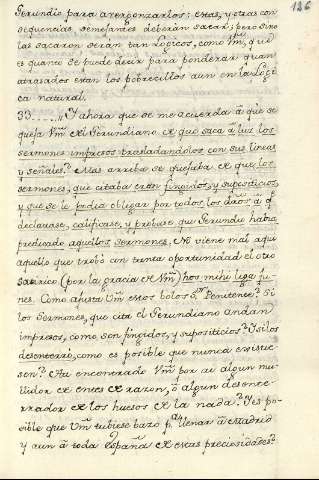 126
Gerundio para avergonzarlos: estas, y otras con
sequencias semejantes deberán sacar; pero si no
las sacaron serán tan Logicos, como Vm̃, que
es quanto se puede decir para ponderar quan
atrasados están los pobrecillos aun en la Logi
ca natural.
33 ..... Y ahora que se me acuerda á que se
queja Vm̃ el Gerundiano de que saca á luz los
sermones impresos trasladandolos con sus lineas
y señales? Mas arriba se quejaba de que los
sermones, que citaba eran fingidos y supositicios
y que se le podia obligar por todos los dros á q̃
declarase, calificase, y probase que Gerundio habia
predicado aquellos sermones. No viene mal aqui
aquello que trobó con tanta oportunidad el otro
satirico (por la gracia de Vm̃) hos mihi liga fu
nes. Como ajusta Vm̃ estos bolos Sor Penitente? Si
los sermones, que cita el Gerundiano andan
impresos, como son fingidos, y supositicios? Y si los
desenterró, como es posible que nunca existie
sen? Ha encontrado Vm̃ por ay algun mu
llidor de entes de razon, ó algun desente
rrador de los huesos de la nada? Y es po-
sible que Vm̃ tubiese bazo pa llenar á Madrid
y aun á toda España de estas preciosidades?